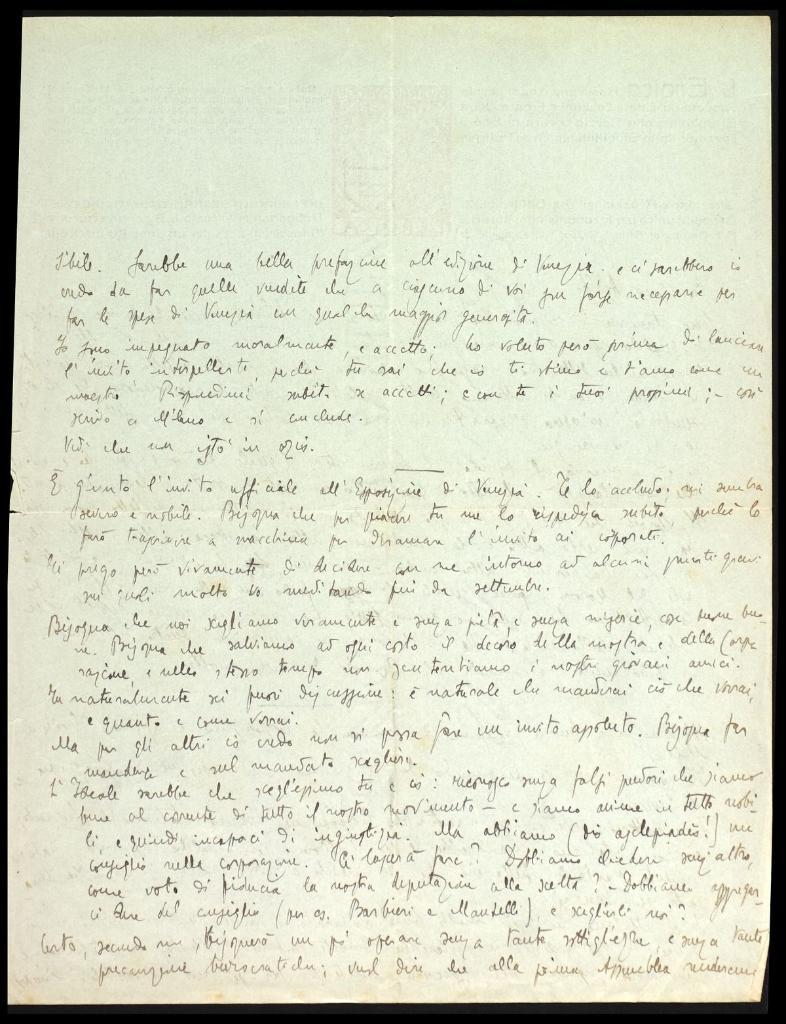 sibile. Sarebbe una bella prefazione all'edizione di Venezia. e ci sarebbero io
credo da far quelle vendite che a ciascuno di voi son forse necessarie per
far le spese di Venezia con qualche maggior generosità.
Io sono impegnato moralmente, e accetto; ho voluto però prima di lanciare
l'invito interpellarti, perchè tu sai che io ti stimo e t'amo come un
maestro. Rispondimi subito se accetti; e con te i tuoi prossimi; – così
scrivo a Milano e si conclude.
Vedi che non istò in ozio.
È giunto l'invito ufficiale all'Esposizione di Venezia. Te lo accludo; mi sembra
serio e nobile. Bisogna che per piacere tu me lo rispedisca subito, perchè lo
farò trascrivere a macchina per diramare l'invito ai corporati.
Ti prego però vivamente di decidere con me intorno ad alcuni punti gravi
sui quali molto vo meditando fin da settembre.
Bisogna che noi scegliamo veramente e senza pietà, e senza miserie, cose buone
ne. Bisogna che salviamo ad ogni costo il decoro della mostra e della Corpo
razione, e nello stesso tempo non scontentiamo i nostri giovani amici.
Tu naturalmente sei fuori discussione: è naturale che manderai ciò che vorrai,
e quanto e come vorrai.
Ma per gli altri io credo non si possa fare un invito assoluto. Bisogna far
mandare e sul mandato scegliere.
L'Ideale sarebbe che scegliessimo tu e io: riconosco senza falsi pudori che siamo
bene al corrente di tutto il nostro movimento – e siamo anime in tutto nobi-
li, e quindi incapaci di ingiustizia. Ma abbiamo (dio asclepiadeo!) un
consiglio nella corporazione. Ci lascerà fare? Dobbiamo chiedere senz'altro,
come voto di fiducia la nostra deputazione alla scelta? – Dobbiamo aggregar-
ci due del consiglio (per es. Barbieri e Mantelli), e sceglierli noi?
Certo, secondo me, bisognerà un pò operare senza tante sottigliezze e senza tante
precauzioni burocratiche; vuol dire che alla prima Assemblea renderemo